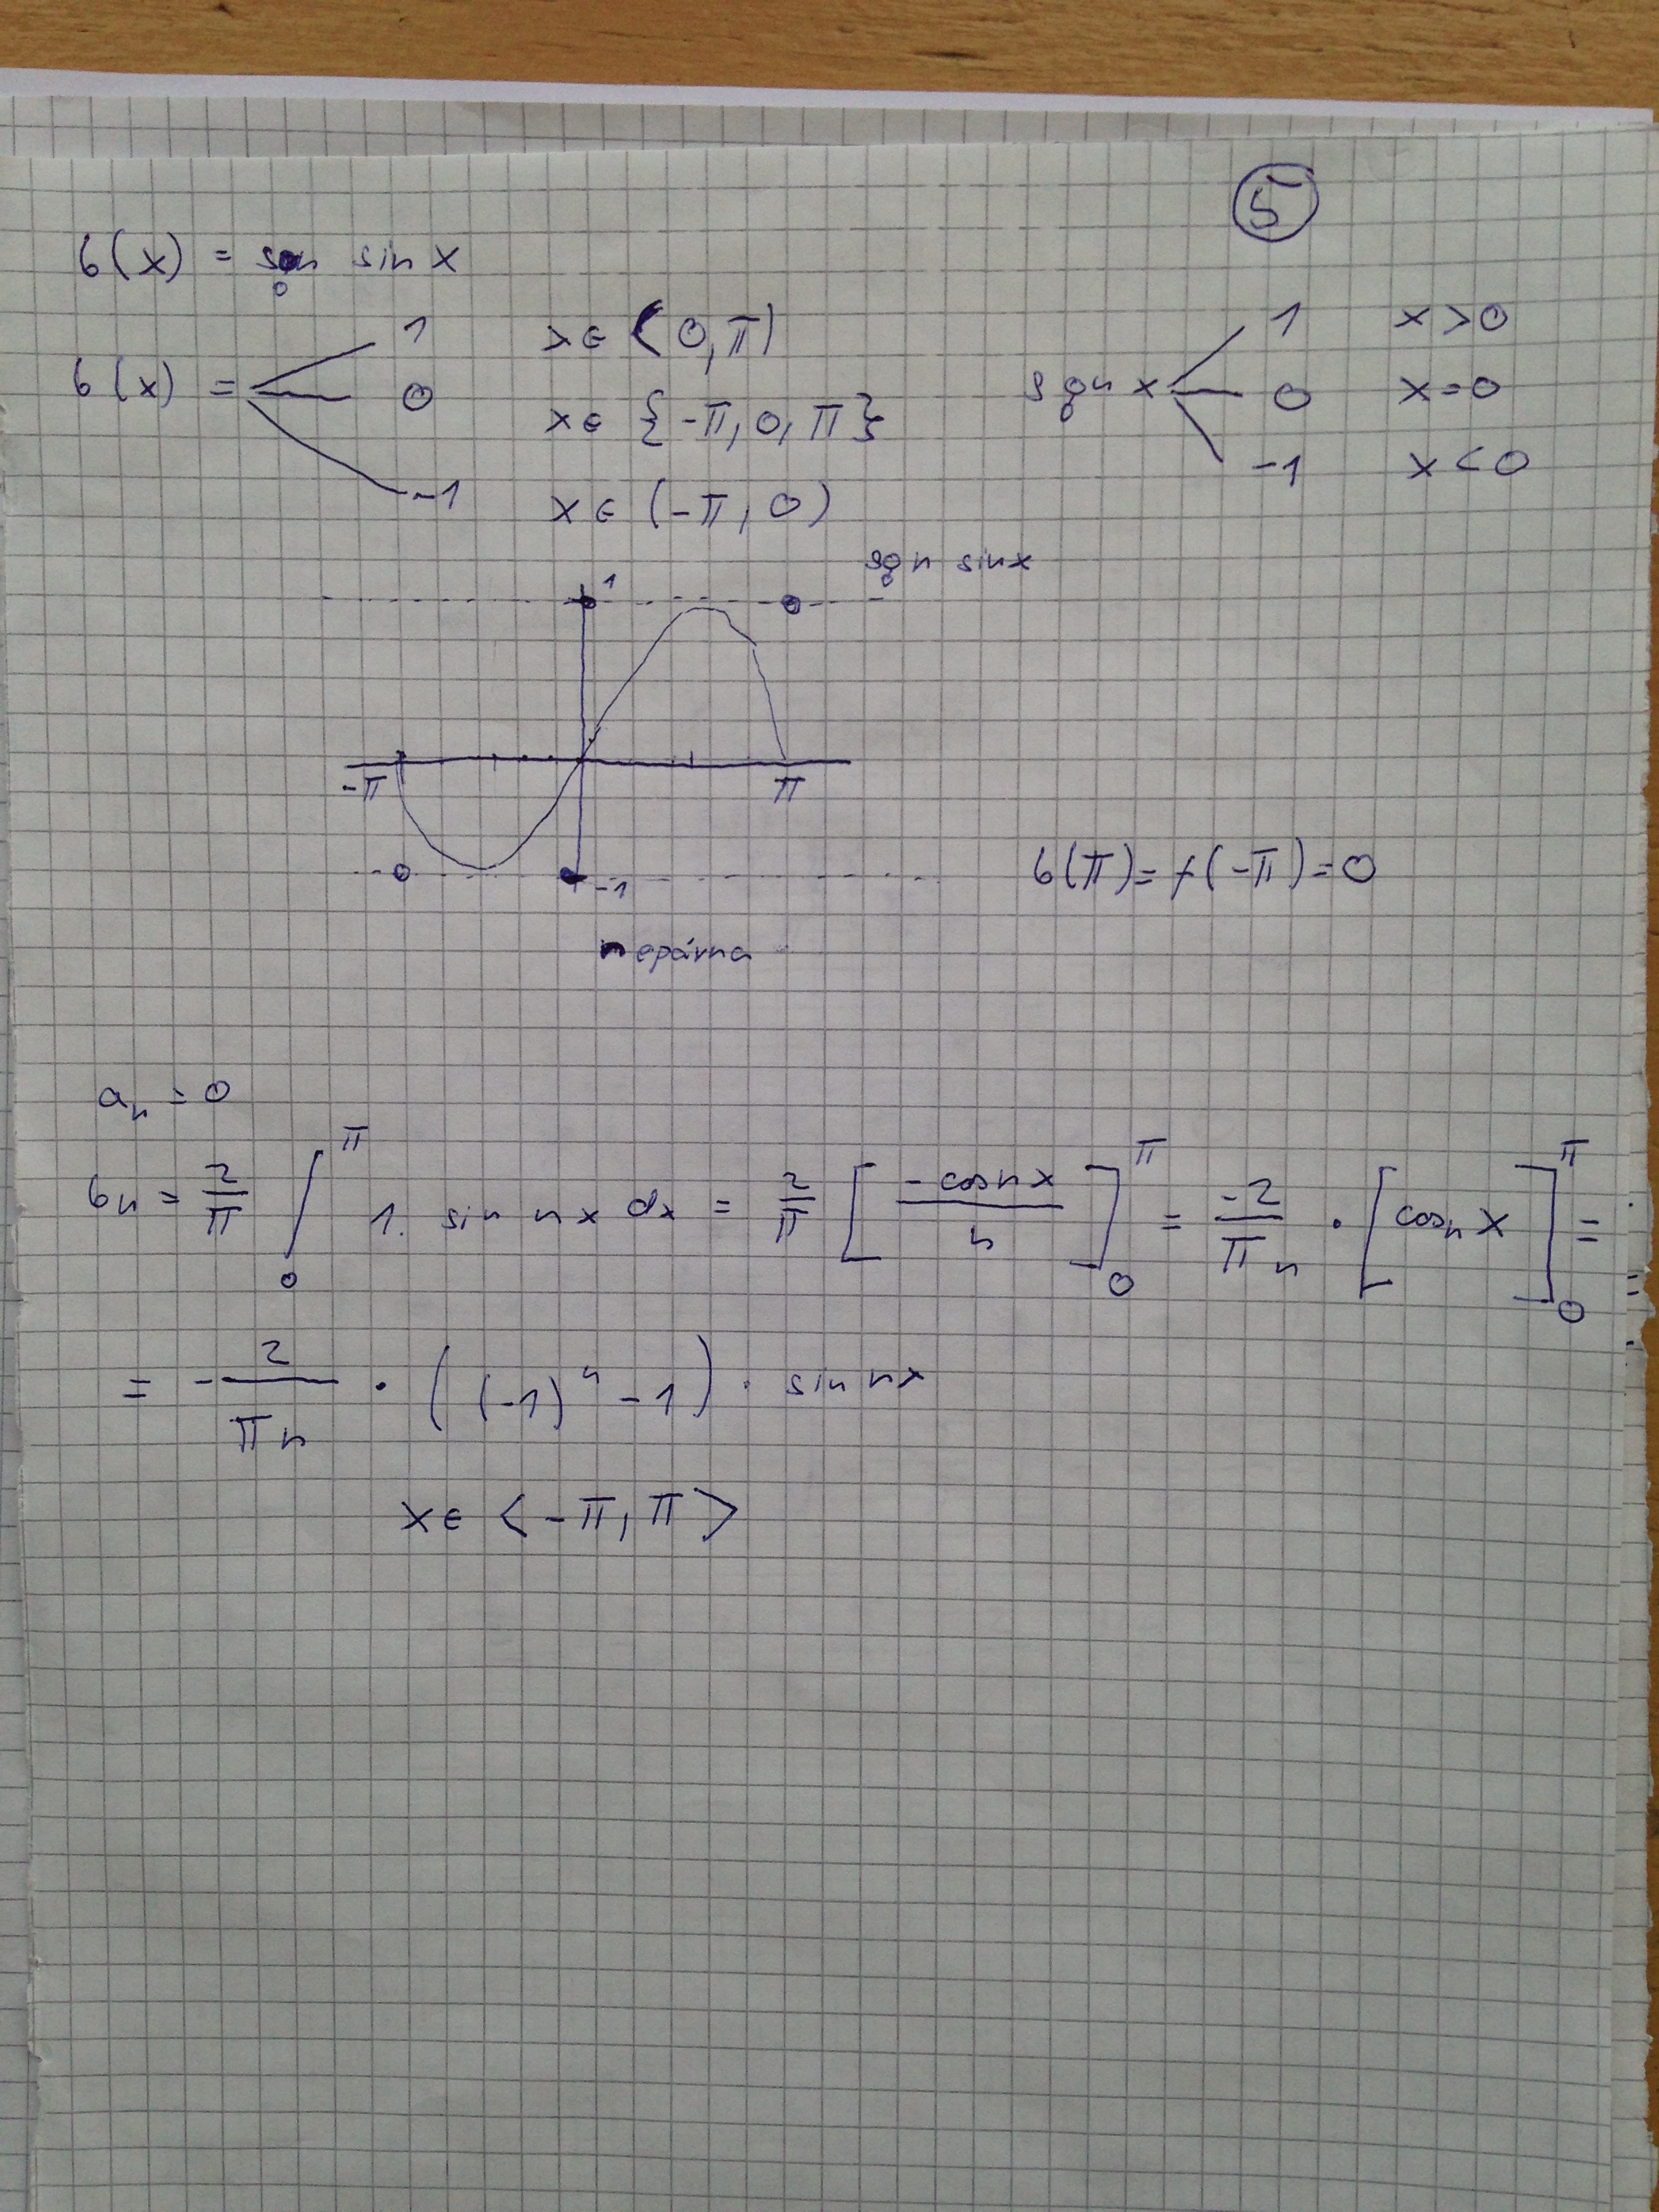 5
f(x) = sgn sin x
f(x) = 1 x ∈ (0, π)
0 x ∈ {-π, 0, π}
-1 x ∈ (-π, 0)
sgn x 1 x > 0
0 x = 0
-1 x < 0
sgn sin x
1
-π π
-1
f(π) = f(-π) = 0
nepárna
aₙ = 0
bₙ = 2/π ∫₀^π 1. sin nx dx = 2/π [ -cos nx / n ]₀^π = -2/πn · [cosn x]₀^π =
= - 2/πn · ((-1)ⁿ - 1) · sin nx
x ∈ <-π, π>